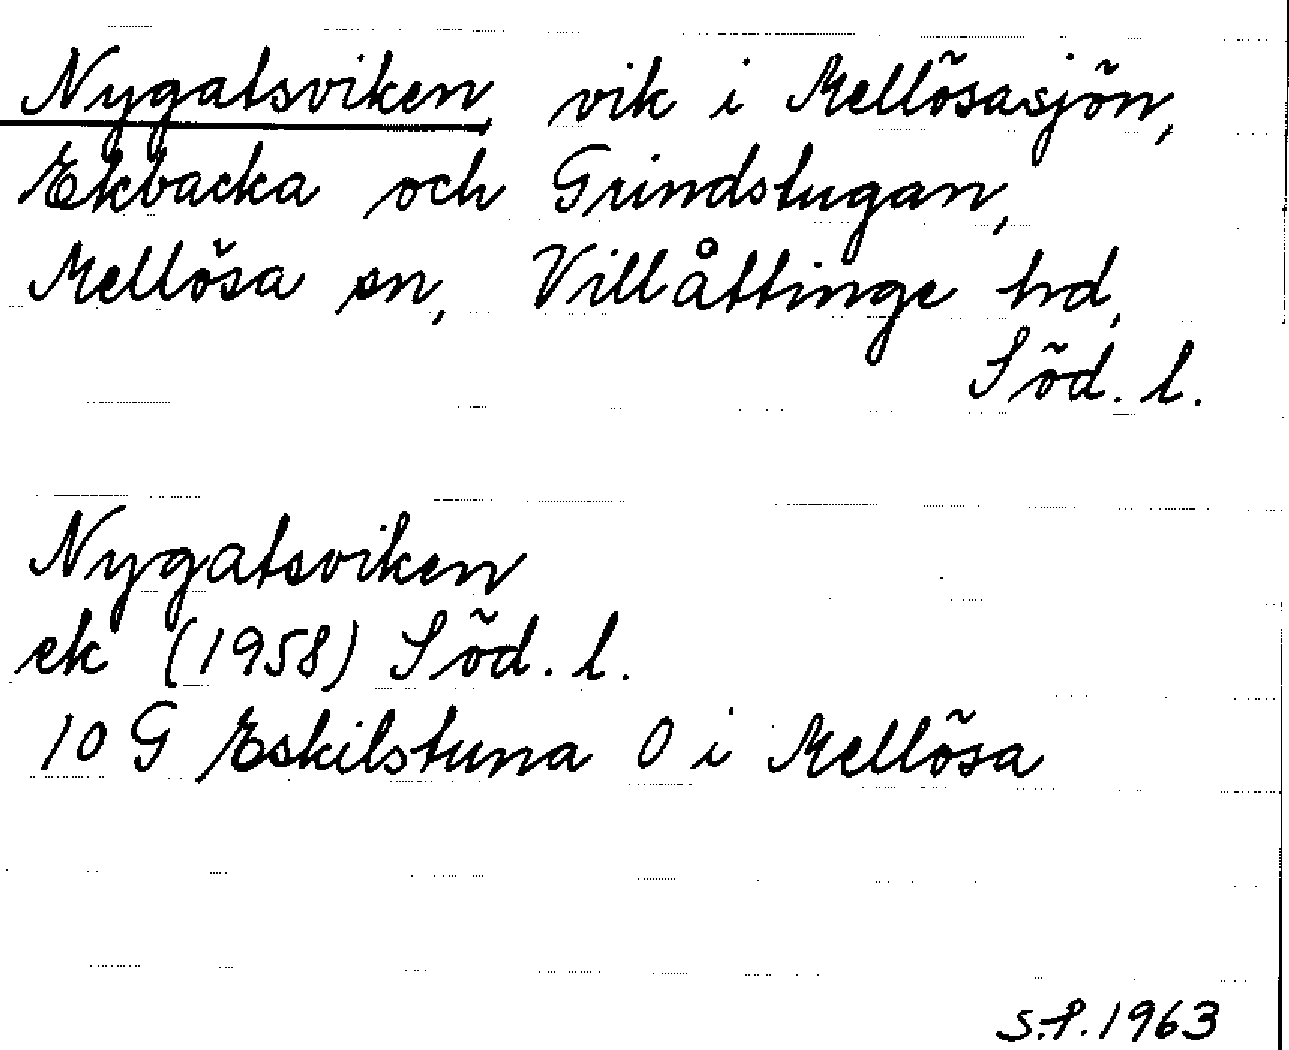 Nygatsviken, vik i Mellösasjön,
Ekbacka och Grindstugan,
Mellösa sn, Villåttinge hd,
Söd. l.
Nygatsviken
ek (1958) Söd. l.
10 G Eskilstuna O i Mellösa
S.P. 1963